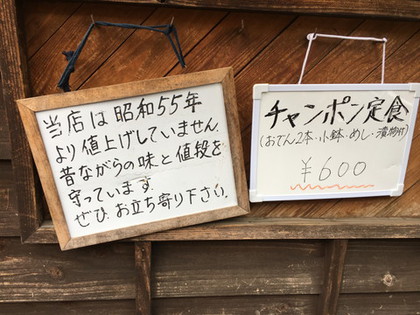 当店は昭和55年
より値上げしていません.
昔ながらの味と値段を
守っています.
ぜひ.お立ち寄り下さい.
チャンポン定食
(おでん2本・小鉢・めし・漬物付)
¥600